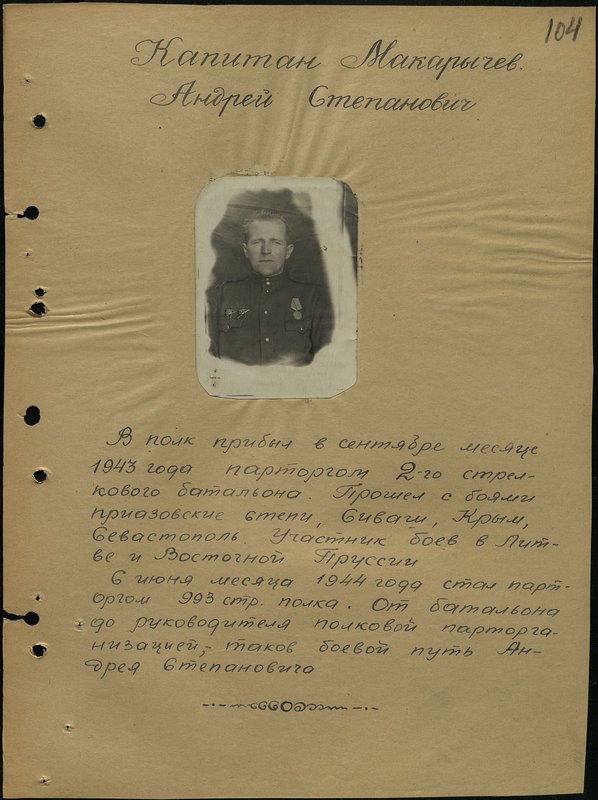 104
Капитан Макарычев.
Андрей Степанович
В полк прибыл в сентябре месяце
1943 года парторгом 2-го стрел-
кового батальона. Прошел с боями
приазовские степи, Сиваш, Крым,
Севастополь. Участник боев в Лит-
ве и Восточной Пруссии
С июня месяца 1944 года стал парт-
оргом 993 стр. полка. От батальона
до руководителя полковой парторга-
низацией,- таков боевой путь Ан-
дрея Степановича